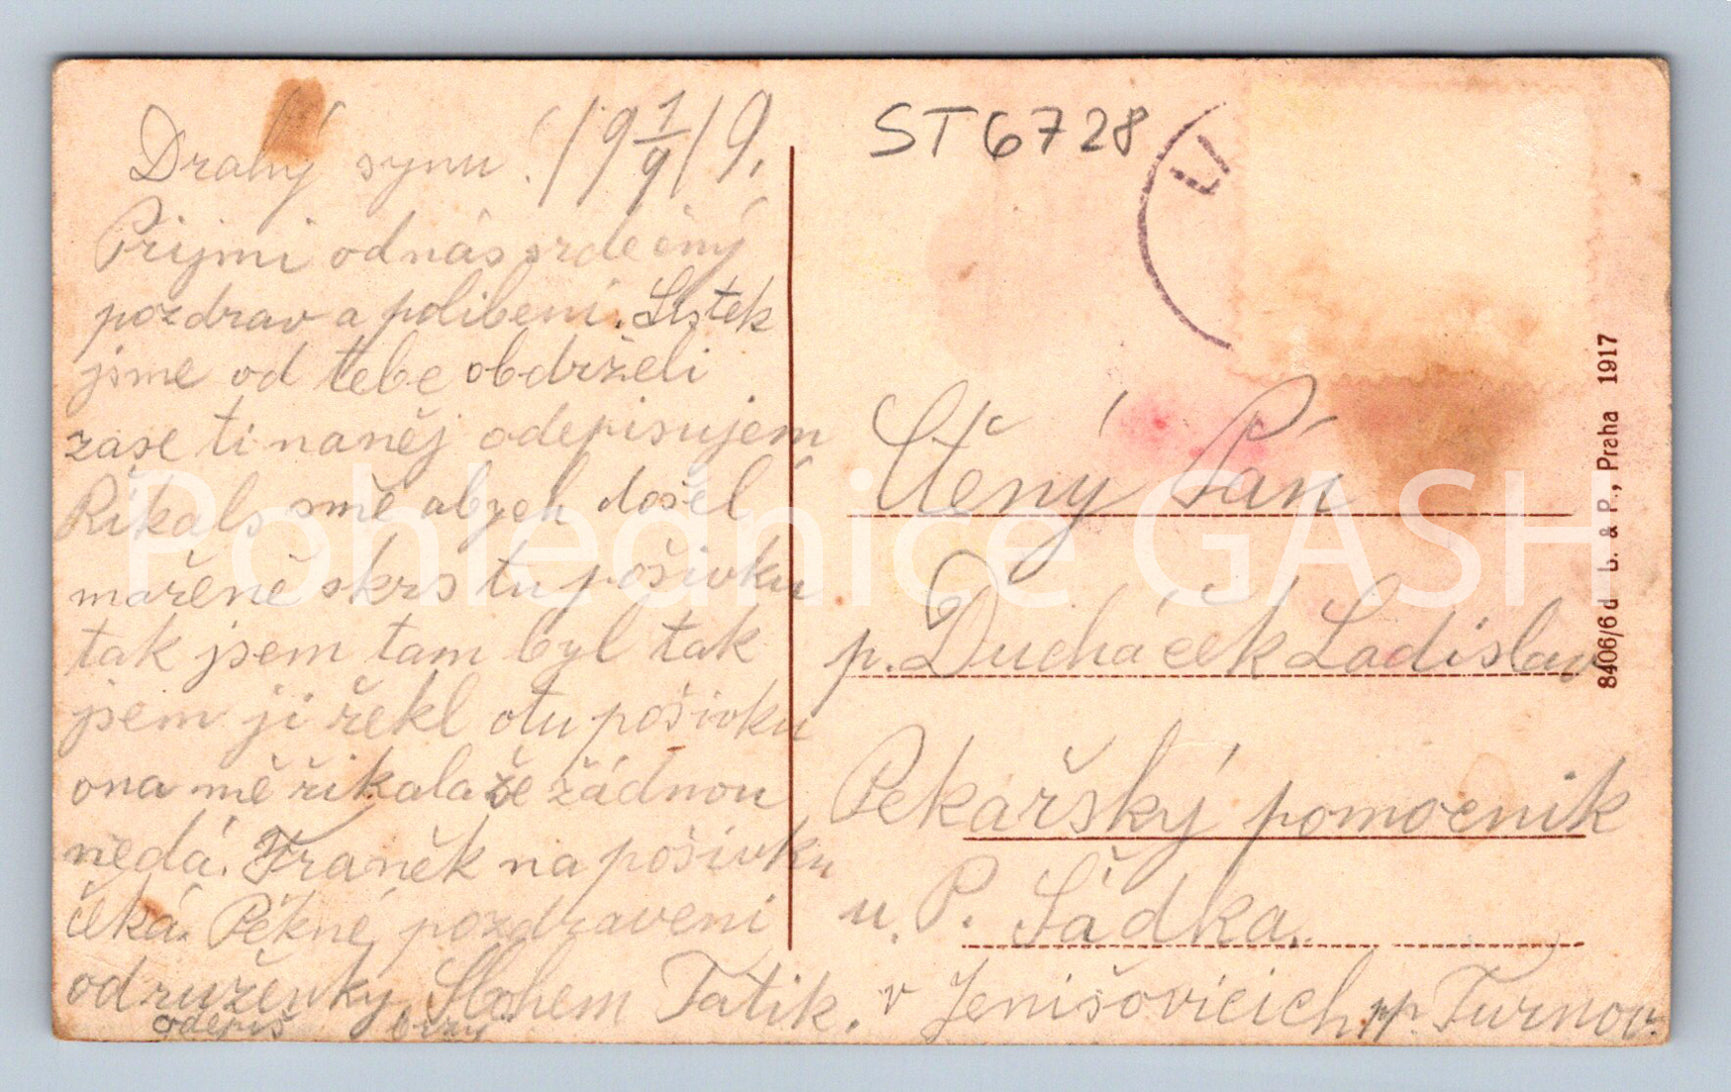 Drahý synu! 19 1/9 19.
Prijmi odnás srdečný
pozdrav a polibení. Lístek
jsme od tebe obdrželi
zase ti naněj odepisujem
Řikals smě abych došel
mařeně skrs tu pošivku
tak jsem tam byl tak
jsem ji řekl otu pošivku
ona mě řikala že žádnou
nedá. Franěk na pošivku
čeká. Pěkné pozdraveni
odruženky Sbohem Tatik.
odepiš brzy
ST6728
Ctěný Pán
p. Ducháček Ladislav
Pekařský pomocnik
u. P. Šádka.
v Jenišovicich, np. Turnov.
8406/6d L. & P., Praha 1917
Pohlednice GASH